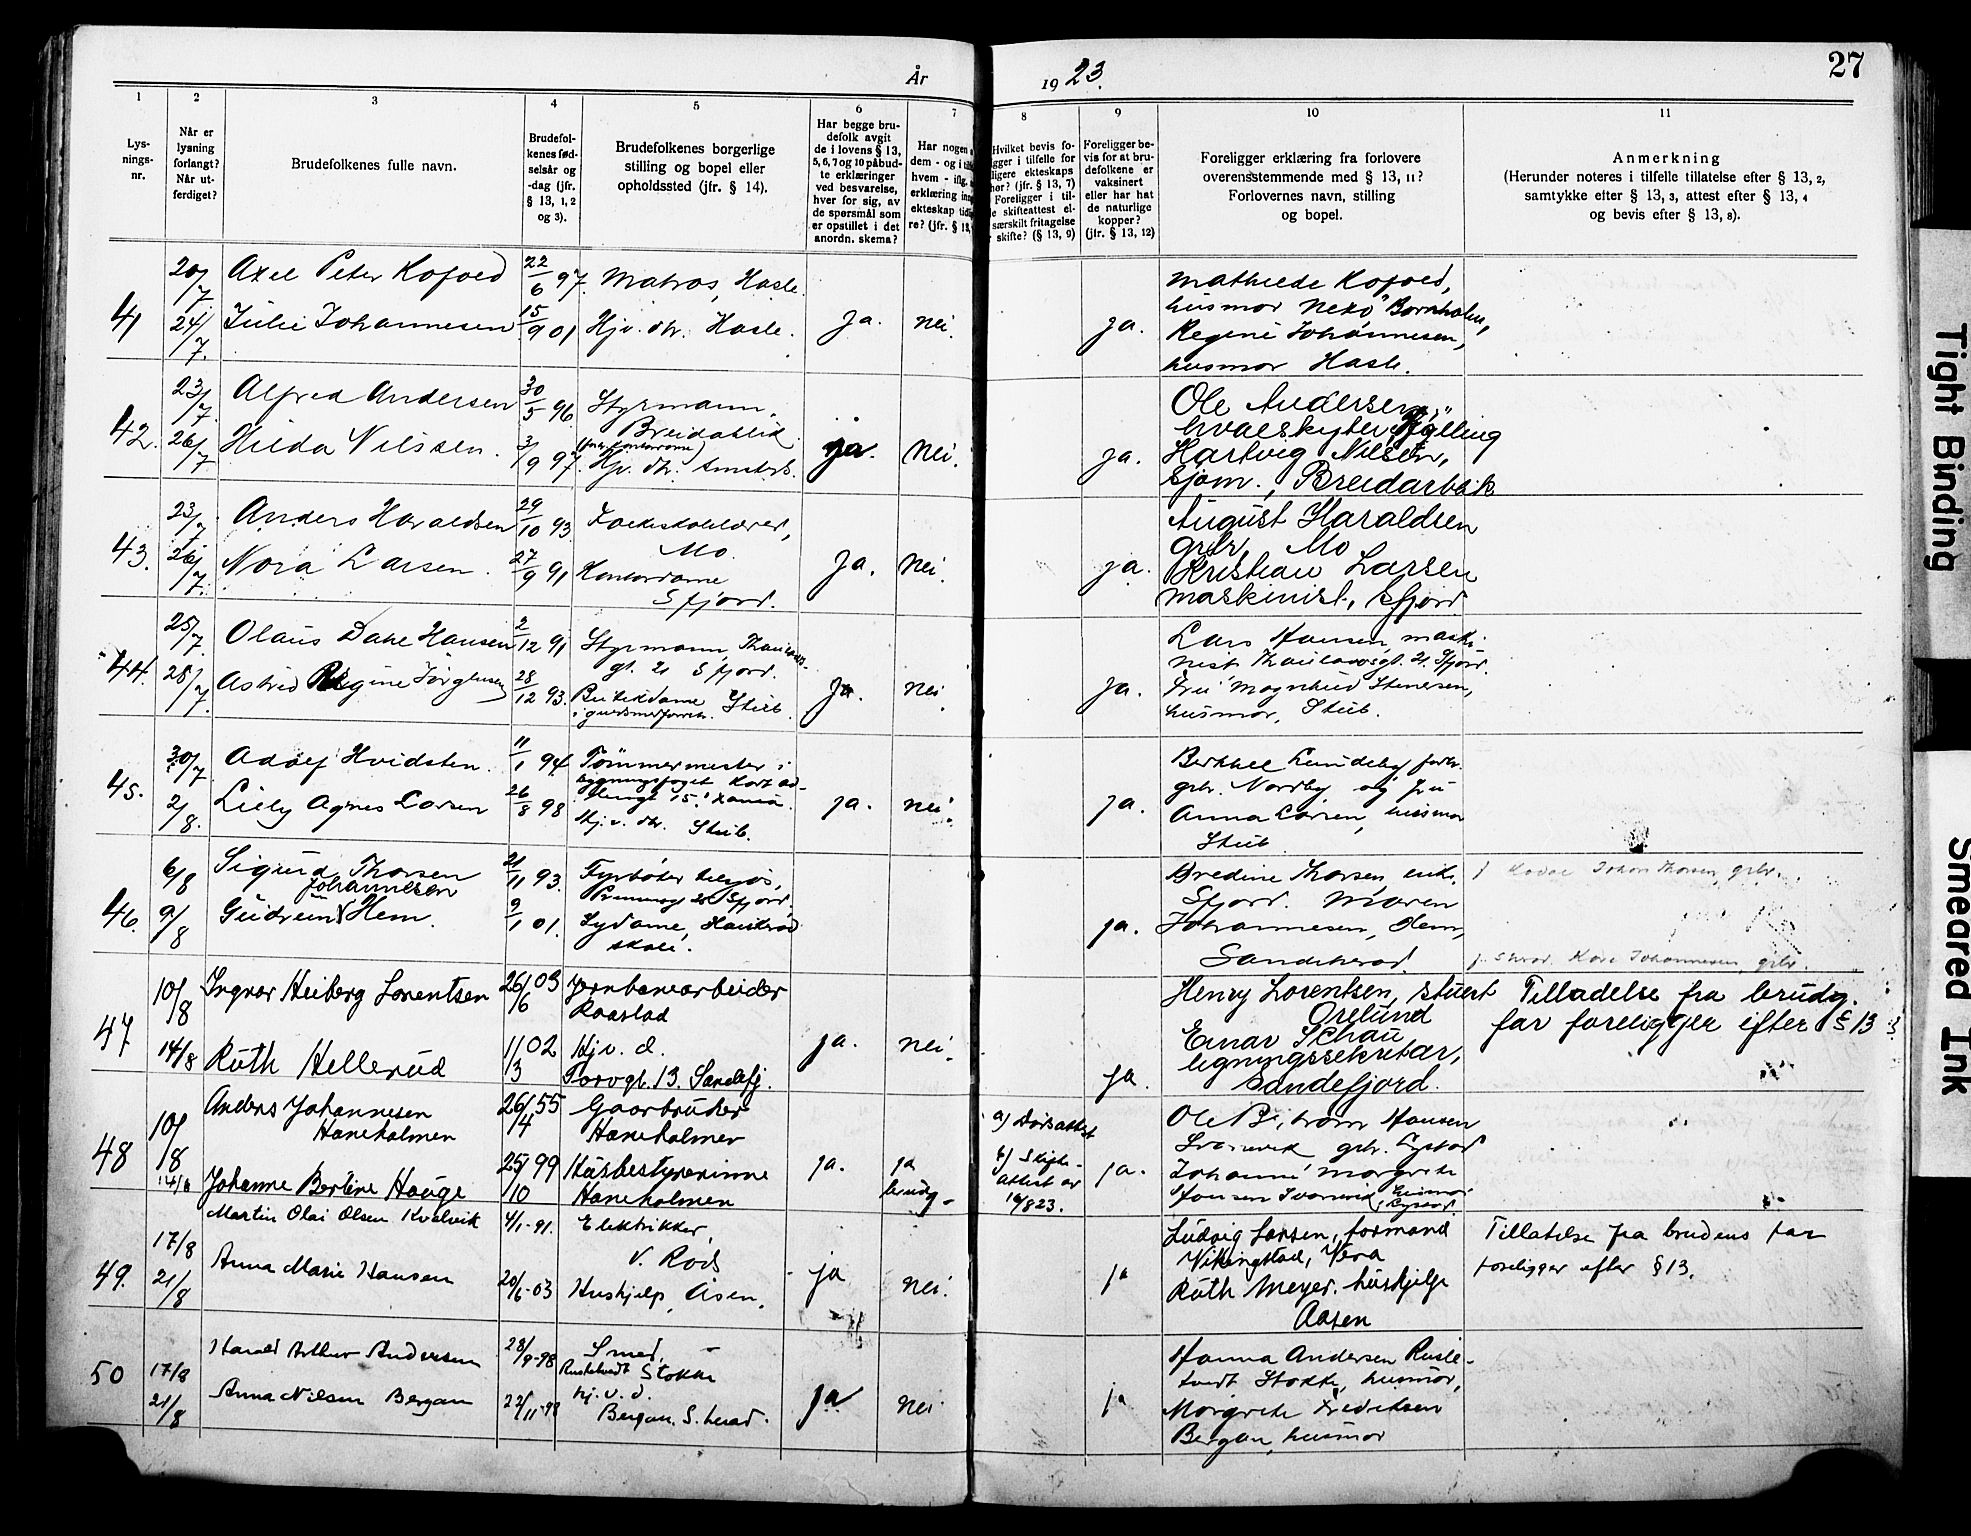 År
19 23.
27
1
2
3
4
5
6
7
8
9
10
11
Lys-
nings-
nr.
Når er
lysning
forlangt?
Når ut-
ferdiget?
Brudefolkenes fulle navn.
Brudefol-
kenes fød-
selsår og
-dag (jfr.
§ 13, 1, 2
og 3).
Brudefolkenes borgerlige
stilling og bopel eller
opholdssted (jfr. § 14).
Har begge bru-
defolk avgit
de i lovens § 13,
5, 6, 7 og 10 påbud-
te erklæringer
ved besvarelse,
hver for sig, av
de spørsmål som
er opstillet i det
anordn. skema?
Har nogen
dem - og i
hvem - iflg.
erklæring
ekteskap tid
re? (jfr. § 13,
Hvilket bevis fo-
gger i tilfelle for
ligere ekteskaps
hør? (jfr. § 13, 7)
Foreligger i til-
le skifteattest el-
særskilt fritagelse
skifte? (§ 13, 9)
Foreligger be-
vis for at bru-
defolkene er
vaksinert
eller har hat
de naturlige
kopper?
(jfr. § 13, 12)
Foreligger erklæring fra forlovere
overensstemmende med § 13, 11?
Forlovernes navn, stilling
og bopel.
Anmerkning
(Herunder noteres i tilfelle tillatelse efter § 13, 2,
samtykke efter § 13, 3, attest efter § 13, 4
og bevis efter § 13, 8).
41
20/7
24/7.
Axel Peter Kofoed
Julie Johannesen
22/6 97.
15/9 01
Matros, Hasle.
Hjv. dtr. Hasle.
ja.
nei.
ja.
Mathilde Kofoed,
husmor Nexø Bornholm,
Regine Johannesen,
husmor Hasle.
42.
23/7.
26/7
Alfred Andersen
Hilda Nilssen.
30/5 96
3/9 97
Styrmann,
Breidablik
Hjv. dtr.
ja.
nei.
ja.
Ole Andersen,
hvalskytter,
Hartvig Nilsen,
sjøm.,
43.
23/7
26/7.
Anders Haraldsen
Nora Larsen.
29/10 93
27/9 91
Folkeskolelærer,
Mo.
Kontordame
Sfjord.
ja.
nei.
ja.
August Haraldsen
grbr, Mo
Kristian Larsen
maskinist, Sfjord
44.
25/7.
28/7.
Olaus Dahl Hansen
Astrid Regine Jørgensen
2/12 91
28/12 93.
Styrmann,
gt. 21 Sfjord.
Butikdame
Stub.
ja.
nei.
ja.
Lars Hansen, maski-
nist gt. 21. Sfjord.
Fru Magnhild Stenersen,
husmor, Stub.
45.
30/7
2/8.
Adolf Hvidsten.
Lilly Agnes Larsen
11/1 94
26/8 98
Tømmermester i
bygningsfaget
Hj. v. dtr. Stub.
ja.
nei.
ja.
Berthel Lundeby
grbr. Nordby og fru
Anna Larsen, husmor
Stub
46.
6/8
9/8
Sigurd Thorsen
Johannesen
Gudrun Hem.
21/11 93.
9/1 01.
Fyrbøter tilsjøs,
Sfjord.
Sydame,
skole.
ja.
Gredine Thorsen enke.
Sfjord. Maren
Johannesen, Hem,
Sandeherad.
Johan Thorsen, grbr.
Johannesen, grbr.
47
10/8
14/8
Ingvar Heiberg Lorentsen
Ruth Hellerud
26/6 03
11/3 02
Jernbanearbeider
Raastad
Hj v. d.
Torvgt. 13. Sandefj.
ja.
nei.
ja.
Henry Lorentsen, stuert
Einar Schau
ligningssekretær,
Sandefjord.
Tilladelse fra brudg.
far foreligger efter § 13
48
10/8
14/8
Anders Johannesen
Haneholmen
Johanne Bertine Hauge
26/4 55
25/10 99
Gaardbruker
Haneholmen
Husbestyrerinne
Haneholmen
ja.
ja
brudg.
a) Dødsattest
b) Skifte-
attest av
16/8 23.
ja.
Ole B. Hansen
grbr.
Johanne Margrete
Hansen
49.
17/8
21/8
Martin Olai Olsen Kvelvik
Anna Marie Hansen
4/1-91.
20/6-03
Elektrikker,
V. Rød
Hushjelp, Åsen.
ja
nei.
ja
Ludvig Larsen, formand
Vikingstad, Vera
Ruth Meyer, hushjelp
Aasen
Tillatelse fra brudens far
foreligger efter § 13.
50
17/8
21/8
Harald Arthur Andersen
Anna Nilsen Bergan
28/9-98
22/11-98
Smed,
Stokke
hj. v. d.
Bergan. S. herad.
ja
nei.
ja
Hanna Andersen Rusle-
tvedt Stokke, husmor,
Margrete Fredriksen
Bergan, husmor
Tight Binding
Smeared Ink